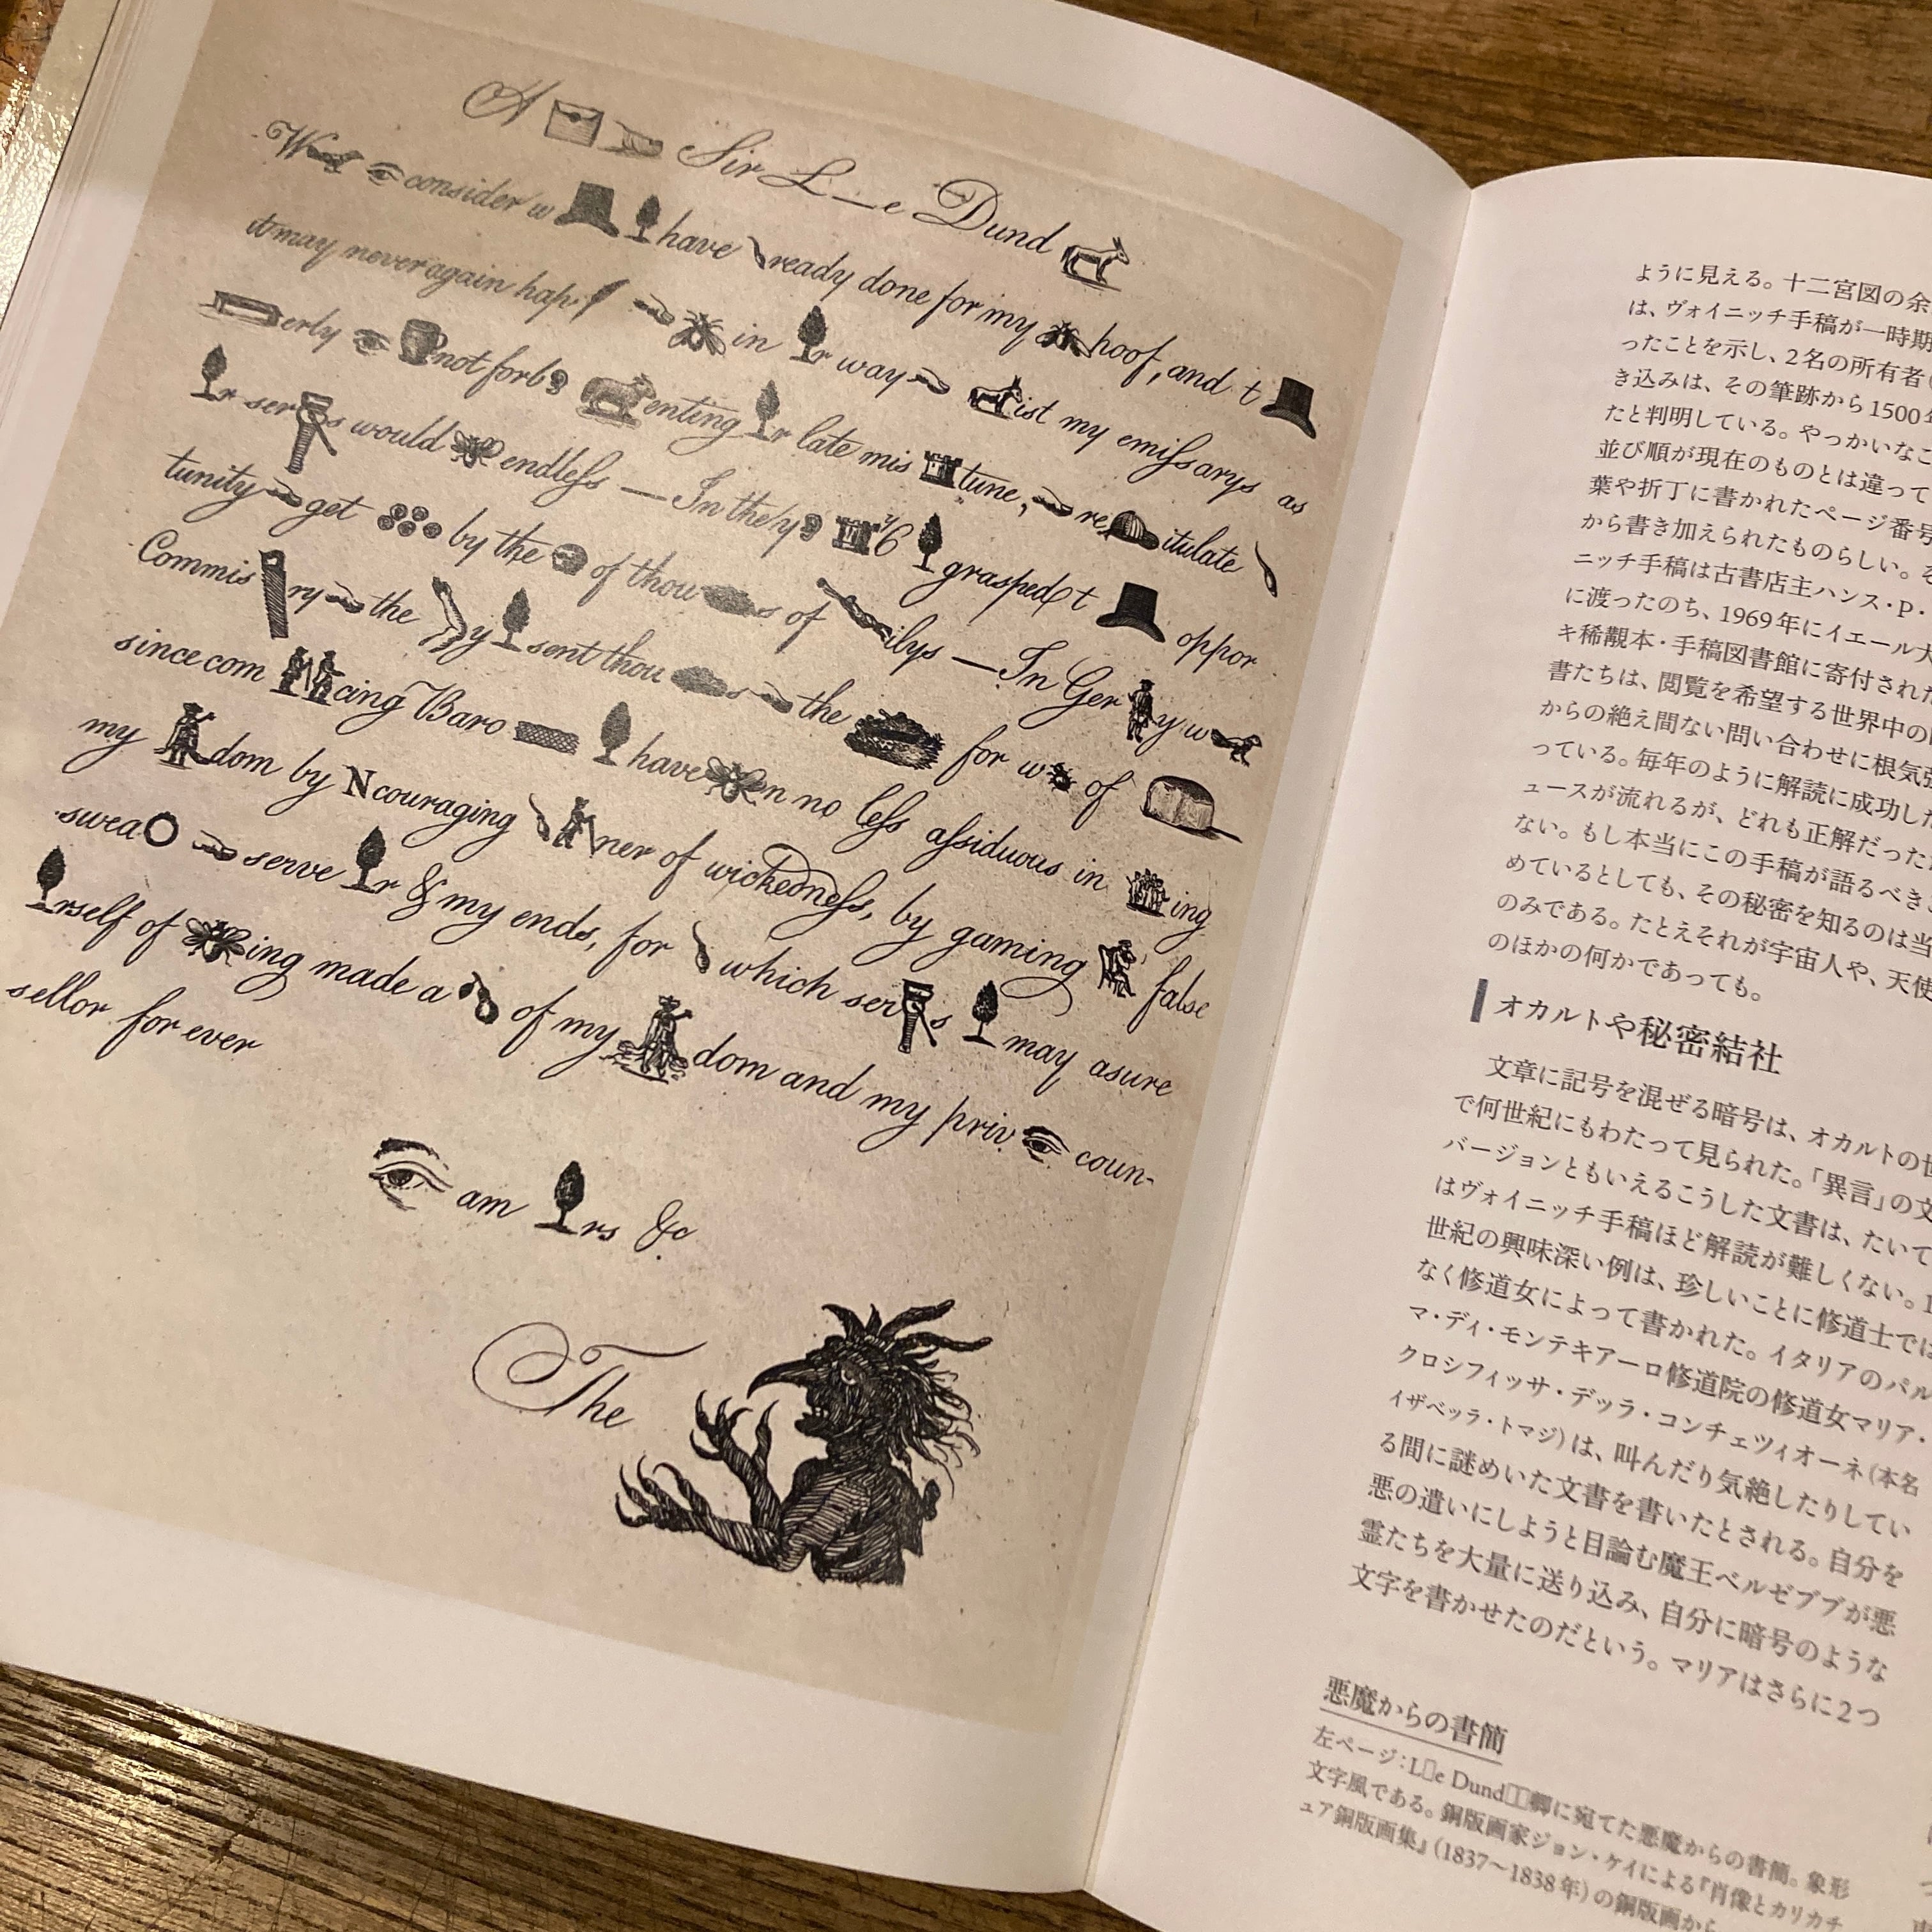 A Sir L_e Dund
W consider w have ready done for my hoof, and t
it may never again hap in r way ist my emissarys as
erly not forb enting r late mis tune, re itulate
r ser s would endless — In the y 46 grasped t oppor
tunity get by the of thou s of ilys — In Ger y w
Commis ry the y sent thou s the for w of
since com cing Baro have n no less assiduous in ing
my dom by Ncouraging ner of wickedness, by gaming false
swea serve r & my ends, for which ser s may asure
rself of ing made a of my dom and my priv coun-
sellor for ever
am rs &c
The
ように見える。十二宮図の余
は、ヴォイニッチ手稿が一時期
ったことを示し、2名の所有者
き込みは、その筆跡から1500年
たと判明している。やっかいなこ
並び順が現在のものとは違って
葉や折丁に書かれたページ番号
から書き加えられたものらしい。そ
ニッチ手稿は古書店主ハンス・P・
に渡ったのち、1969年にイエール大
キ稀覯本・手稿図書館に寄付された
書たちは、閲覧を希望する世界中の
からの絶え間ない問い合わせに根気強
っている。毎年のように解読に成功した
ュースが流れるが、どれも正解だった
ない。もし本当にこの手稿が語るべき
めているとしても、その秘密を知るのは当
のみである。たとえそれが宇宙人や、天使
のほかの何かであっても。
オカルトや秘密結社
文章に記号を混ぜる暗号は、オカルトの世
で何世紀にもわたって見られた。「異言」の文
バージョンともいえるこうした文書は、たいて
はヴォイニッチ手稿ほど解読が難しくない。1
世紀の興味深い例は、珍しいことに修道士では
なく修道女によって書かれた。イタリアのパル
マ・ディ・モンテキアーロ修道院の修道女マリア・
クロシフィッサ・デッラ・コンチェツィオーネ(本名
イザベッラ・トマジ)は、叫んだり気絶したりしてい
る間に謎めいた文書を書いたとされる。自分を
悪の遣いにしようと目論む魔王ベルゼブブが悪
霊たちを大量に送り込み、自分に暗号のような
文字を書かせたのだという。マリアはさらに2つ
悪魔からの書簡
左ページ：L□e Dund□□卿に宛てた悪魔からの書簡。象形
文字風である。銅版画家ジョン・ケイによる『肖像とカリカチ
ュア銅版画集』(1837～1838年)の銅版画から